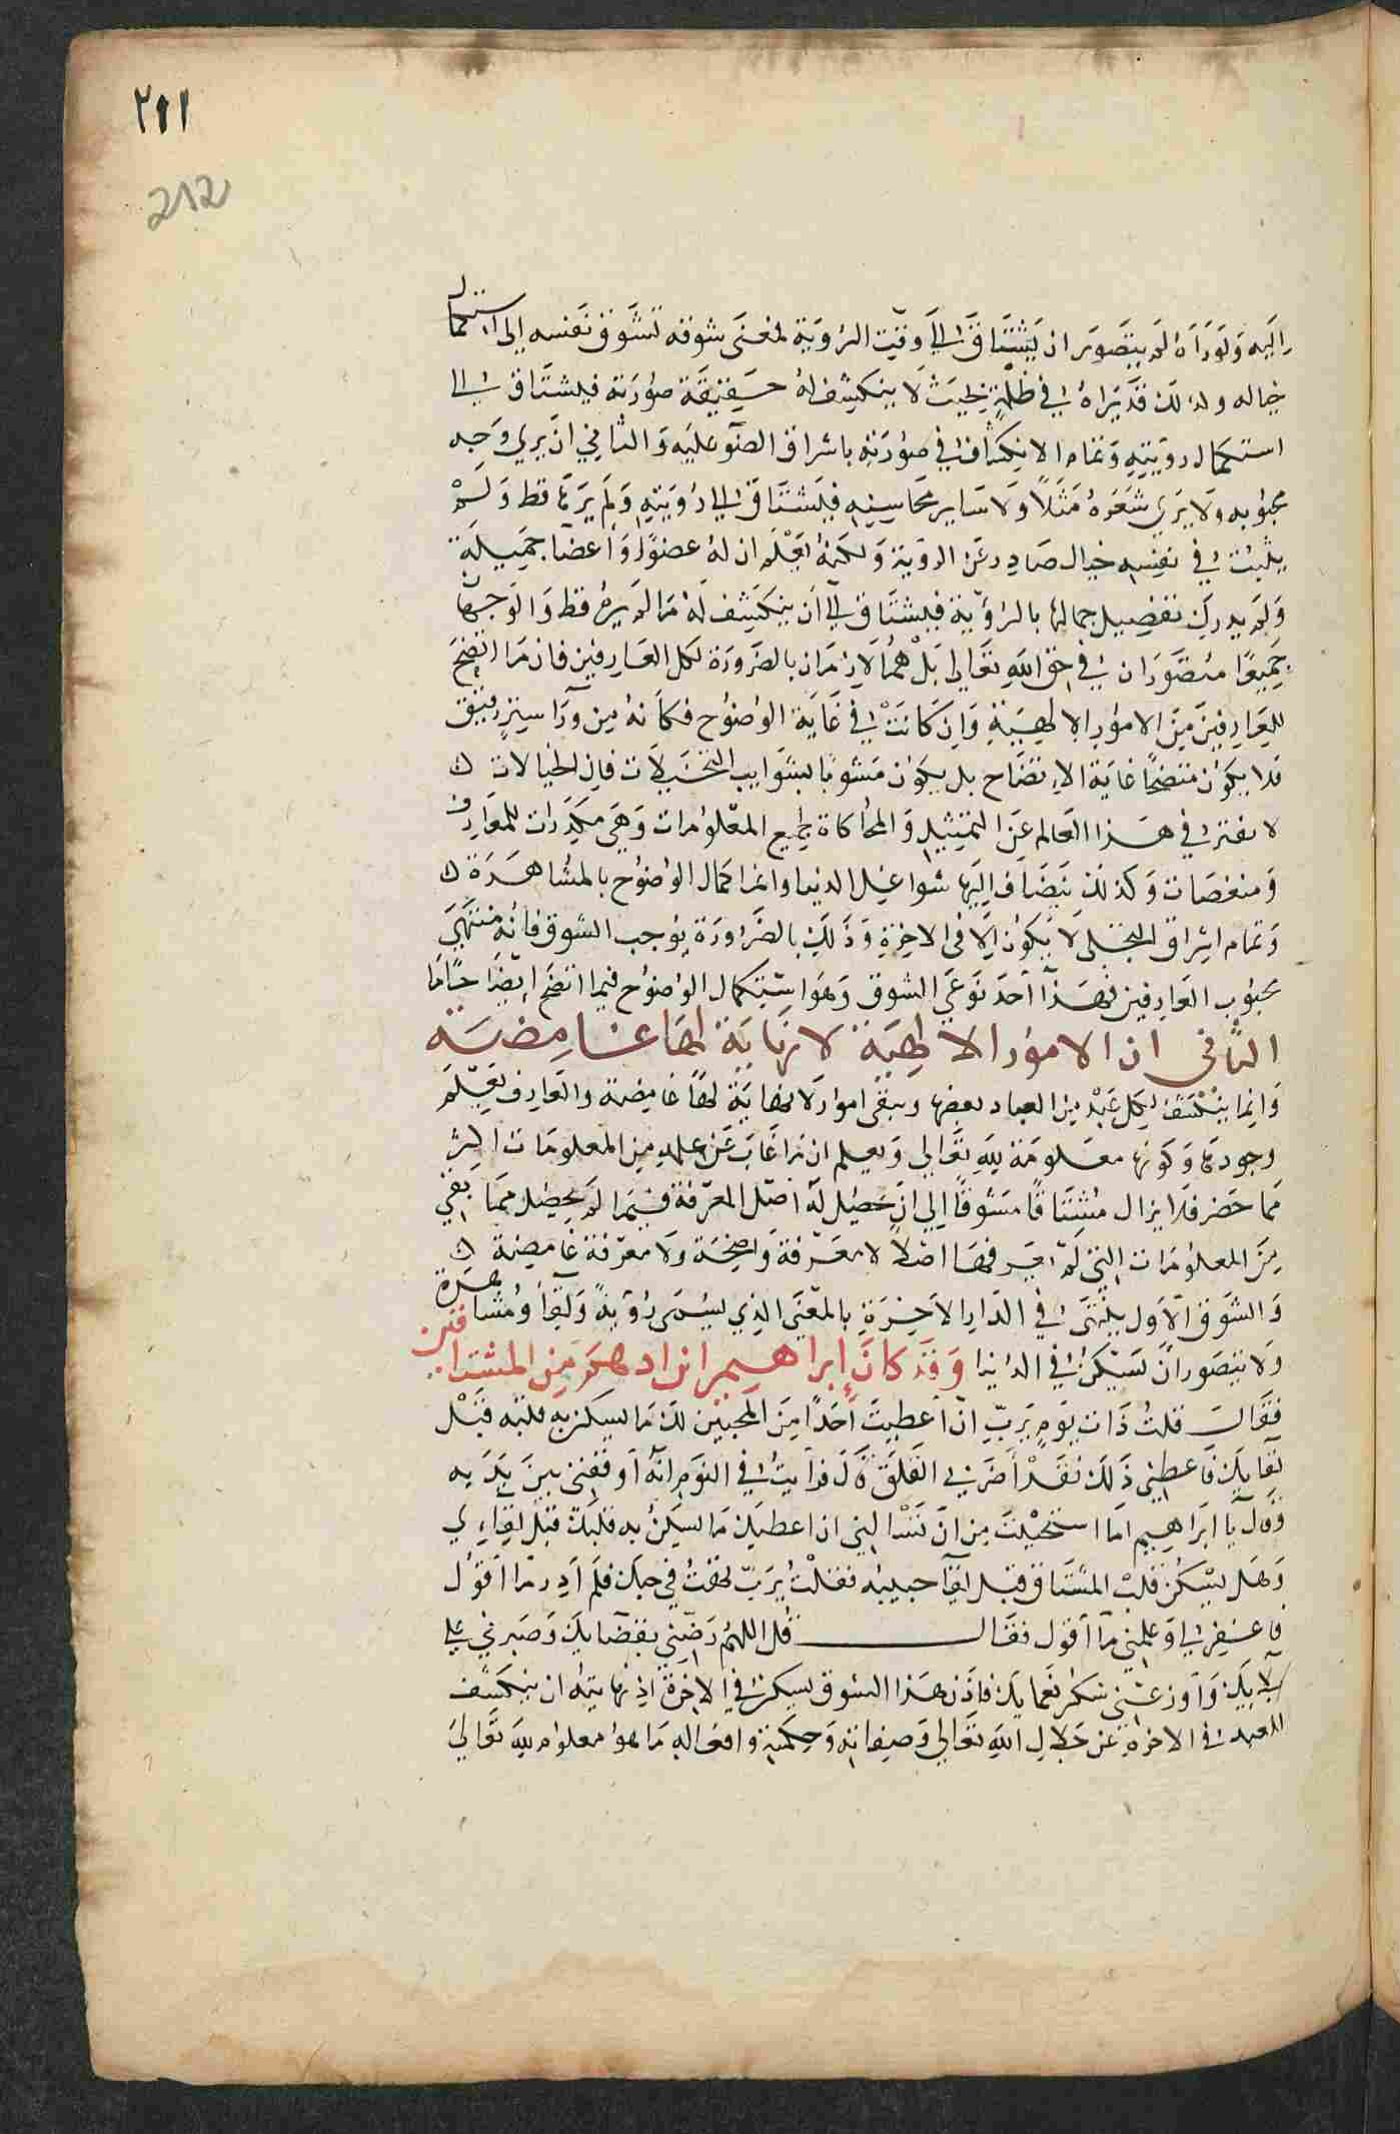 ٢١١
212
إليه ولو رآه لم يتصور ان يشتاق الي وقت الرؤية فمعنى شوقه تشوق نفسه إلى استكمال
خياله ولذلك قد يراه في ظلمة بحيث لا ينكشف له حقيقة صورته فيشتاق الى
استكمال رويته وتمام الانكشاف في صورته باشراق الضو عليه والثاني ان يري وجه
محبوبه ولا يرى شعره مثلا ولا ساير محاسنه فيشتاق الى رؤيته ولم يرها قط ولم
يثبت في نفسه خيال صادر عن الروية ولكنه يعلم ان له عضوا واعضا جميلة
ولم يدرك تفصيل جمالها بالرؤية فيشتاق الى أن ينكشف له ما لم يره قط والوجهان
جميعا متصوران في حق الله تعالى بل هما لازمان بالضرورة لكل العارفين فان ما اتضح
للعارفين من الامور الالهية وان كانت في غاية الوضوح فكانه من ورآ ستر رقيق
فلا يكون متضحا غاية الاتضاح بل يكون مشوبا بشوايب التخيلات فان الخيالات
لا تفتر في هذا العالم عن التمثيل والمحاكاة لجميع المعلومات وهي مكدرات للمعارف
ومنغصات وكذلك يضاف اليها شواغل الدنيا وانما كمال الوضوح بالمشاهدة
وتمام اشراق التجلى لا يكون الا في الاخرة وذلك بالضرورة يوجب الشوق فانه منتهى
محبوب العارفين فهذا أحد نوعي الشوق وهو استكمال الوضوح فيما اتضح ايضاحا ما
الثاني ان الامور الالهية لا نهاية لها غامضة
وانما ينكشف لكل عبد من العباد بعضها وببقى امور لا نهاية لها غامضة والعارف يعلم
وجودها وكونها معلومة لله تعالى ويعلم ان ما غاب عن علمه من المعلومات اكثر
مما حضر فلا يزال مشتاقا مشوقا الى ان حصل له اصل المعرفة فيما لم يحصل مما بقي
من المعلومات التي لم يعرفها اصلا لا معرفة واضحة ولا معرفة غامضة
والشوق الاول ينتهى في الدار الاخرة بالمعنى الذي يسمى رؤية ولقا ومشاهدة
ولا يتصور ان يسكن في الدنيا وقد كان إبراهيم ابن ادهم من المشتاقين
فقال قلت ذات يوم يرب ان أعطيت أحدا من المحبين لك ما يسكن به قلبه قبل
لقايك فاعطني ذلك فقد أضر بي القلق قال فرأيت في النوم انه أوقفني بين يديه
وقال يا ابراهيم اما استحيت من ان تسالني ان اعطيك ما يسكن به قلبك قبل لقاءي
وهل يسكن قلب المشتاق قبل لقآ حبيبه فقلت يرب تهت في حبك فلم أدر ما أقول
فاغفر لي وعلمني ما أقول فقال قل اللهم رضني بقضايك وصبرني على
بلايك وأوزعني شكر نعمايك فاذن هذا الشوق يسكن في الاخرة اذ نهايته ان ينكشف
للعبد في الاخرة عن جلال الله تعالى وصفاته وحكمته وافعاله ما هو معلوم لله تعالى